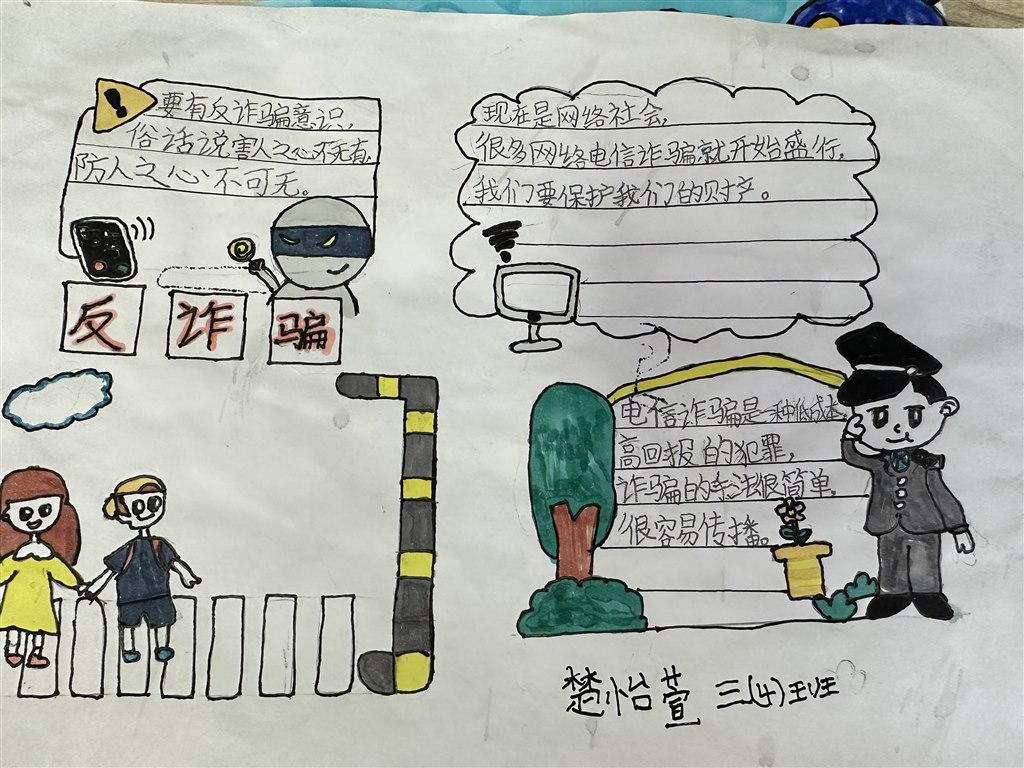 要有反诈骗意识,
俗话说害人之心不无有,
防人之心不可无。
反诈骗
现在是网络社会,
很多网络电信诈骗就开始盛行,
我们要保护我们的财产。
电信诈骗是一种低成本
高回报的犯罪,
诈骗的手法很简单,
很容易传播。
楚怡萱 三(4)班